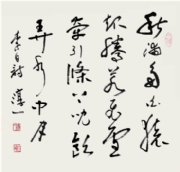 秋浦多白猿
超騰若飛雪
牽引條上兒飲
弄水中月
李白詩 淳一